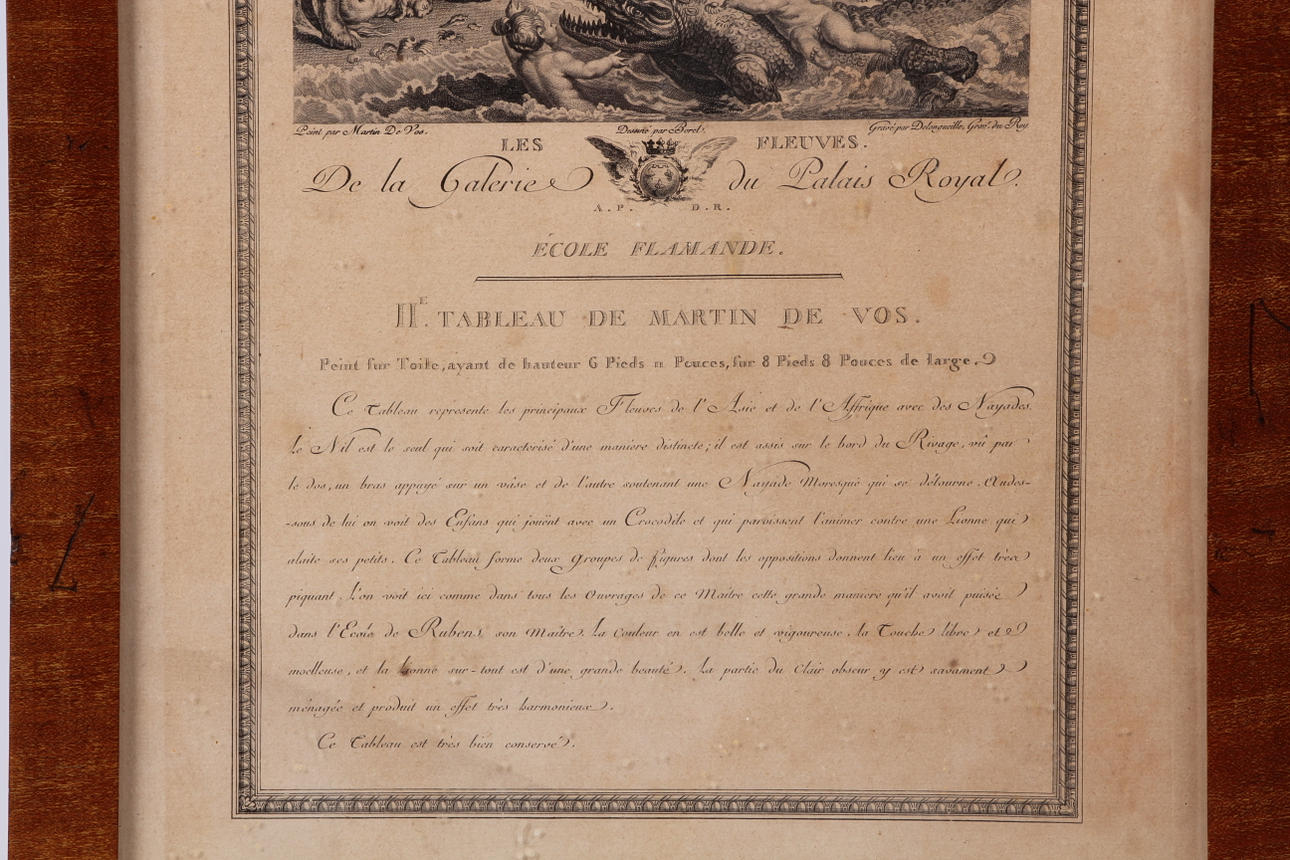 Peint par Martin De Vos. Dessiné par Borel. Gravé par Delongueille, Grav. du Roy
LES FLEUVES.
De la Galerie du Palais Royal.
A. P. D. R.
ÉCOLE FLAMANDE.
IIE. TABLEAU DE MARTIN DE VOS.
Peint sur Toile, ayant de hauteur 6 Pieds 11 Pouces, sur 8 Pieds 8 Pouces de large.
Ce Tableau represente les principaux Fleuves de l'Asie et de l'Affrique avec des Nayades.
Le Nil est le seul qui soit caracterisé d'une maniere distincte; il est assis sur le bord du Rivage, vû par
le dos, un bras appuyé sur un vâse et de l'autre soutenant une Nayade Moresque qui se détourne. Audes-
-sous de lui on voit des Enfans qui jouënt avec un Crocodile et qui paroissent l'animer contre une Lionne qui
alaite ses petits. Ce Tableau forme deux Groupes de figures dont les oppositions donnent lieu à un effet très
piquant. L'on voit ici comme dans tous les Ouvrages de ce Maître cette grande maniere qu'il avoit puisée
dans l'Ecole de Rubens, son Maître. La Couleur en est belle et vigoureuse, la Touche libre et
moelleuse, et la Lionne sur-tout est d'une grande beauté. La partie du Clair obscur y est savament
ménagée et produit un effet très harmonieux.
Ce Tableau est très bien conservé.